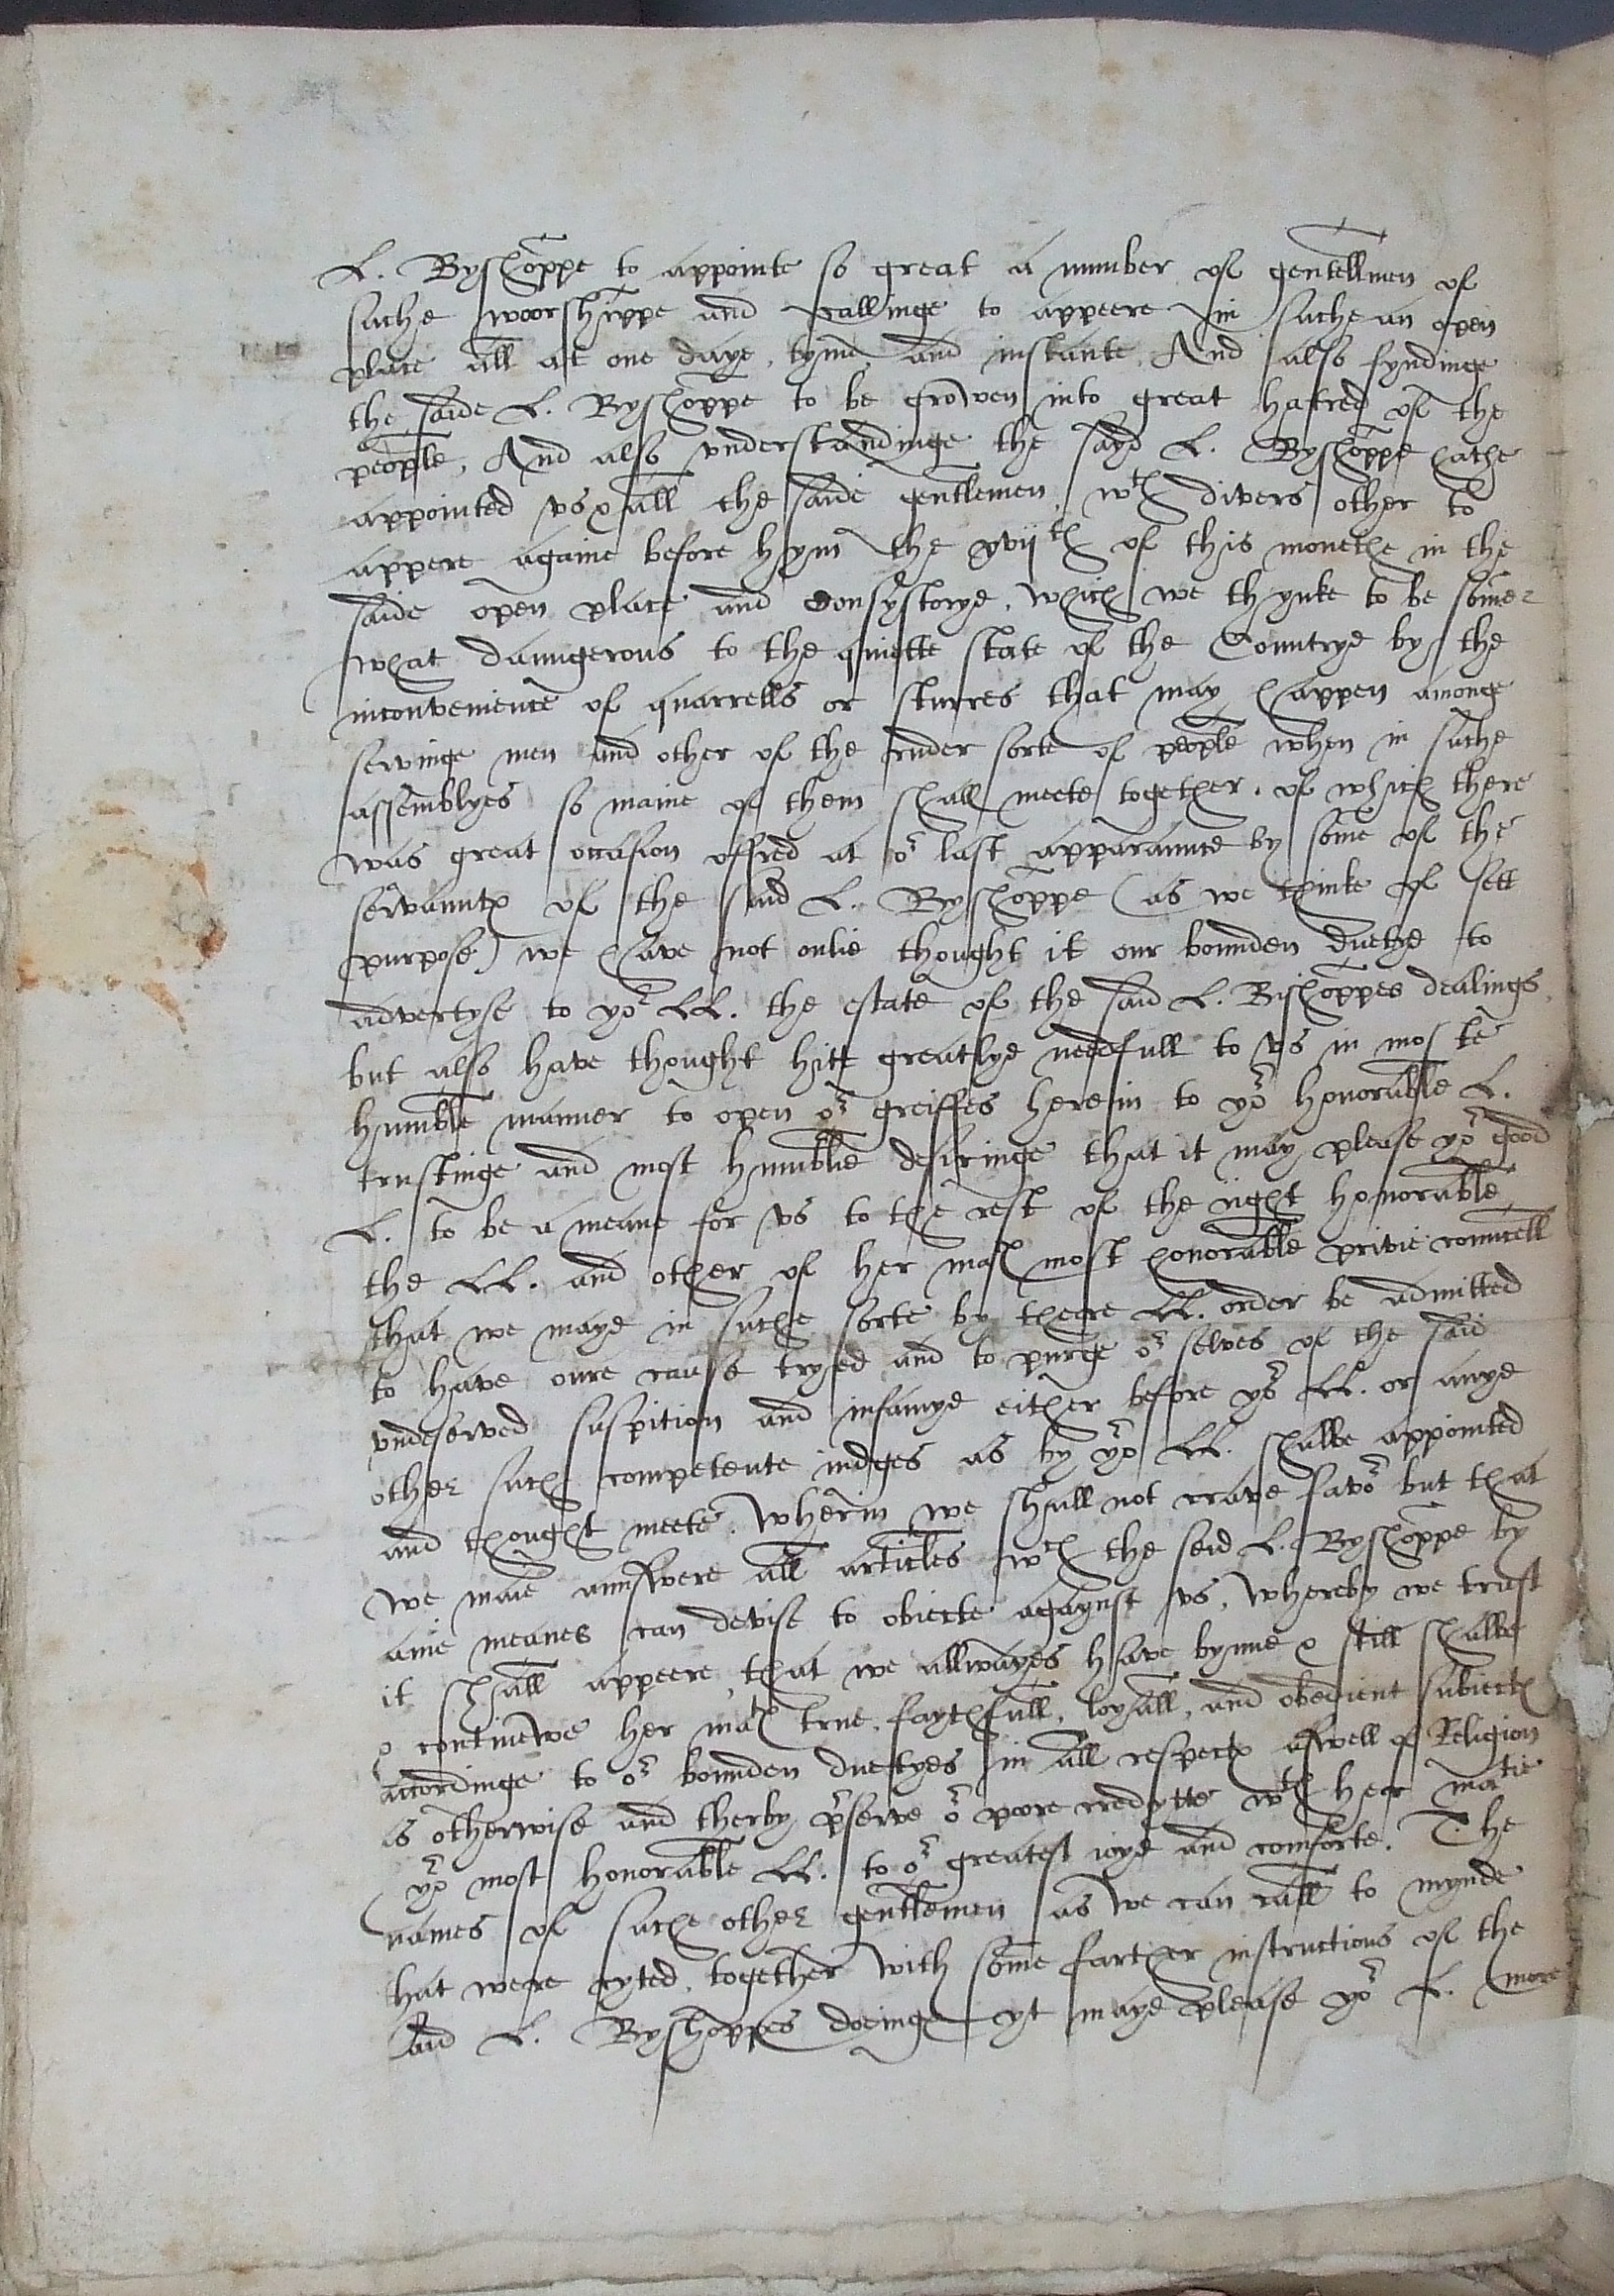 L. Byshoppe to appointe so great a number of gentellmen of
suche woorshippe and callinge to appeere in suche an open
place all at one daye, tyme and instante, And also fyndinge
the saide L. Byshoppe to be growen into great hatred of the
people, And also understandinge the sayd L. Byshoppe hathe
appointed us & all the saide gentlemen wth divers other to
appere againe before hym the xvijth of this monethe in the
saide open place and Consystorye, which we thynke to be some
what daungerous to the quiette state of the Countrye by the
inconvenience of quarrells or sturres that may happen amonge
servinge men and other of the ruder sorte of people when in suche
assemblyes so manie of them shall meete together, of which there
was great occasion offred at or last apparaunce by some of the
servauntes of the said L. Byshoppe (as we thinke of sett
purpose) we have not onlie thought it our bounden duetye to
advertyse to yor LL. the estate of the said L. Bishoppes dealings,
but also have thought hitt greatlye needfull to us in moste
humble manner to open or greiffes herein to yor honorable L.
trustinge and most humblie desiringe that it may please yor good
L. to be a meane for us to the rest of the right honorable
the LL. and other of her mates most honorable privie councell
that we maye in suche sorte by theere LL. order be admitted
to have oure cause tryed and to purge or selves of the said
undeserved suspition and infamye either before yor LL. or anye
other such competente iudges as by yor LL. shalbe appointed
and thought meete. Wherin we shall not crave favor but that
we maie aunswere all articles wch the seid L. Byshoppe by
anie meanes can devise to obiecte agaynst us, whereby we trust
it shall appeere that we allwayes have bynne & still shalbe
& continewe her mates true, faythfull, loyall, and obedient subiectes
accordinge to or bounden duetyes in all respectes aswell of Religion
as otherwise and therby pserve or poore credytte wth hear matie
yor most honorable LL. to or greatest ioye and comforte. The
names of suche other gentlemen as we can call to mynde
that weare cyted, together with some farther instructions of the
said L. Byshoppes doeinge yt maye please yor L. more